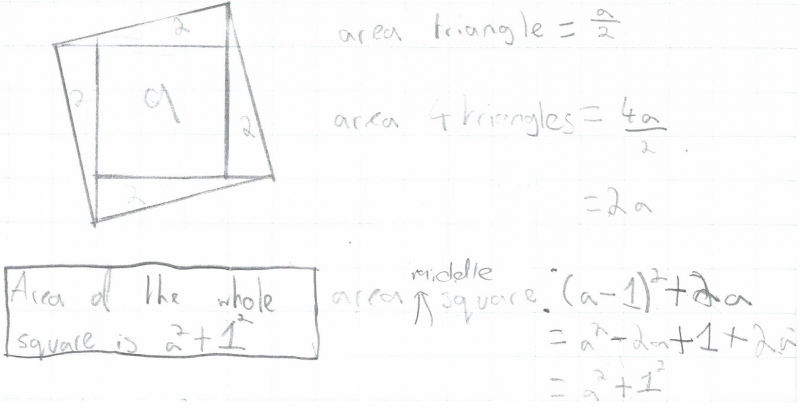 2
2
a
2
2
area triangle = a/2
area 4 triangles = 4a/2
= 2a
Area of the whole
square is a² + 1²
area middle square: (a-1)² + 2a
= a² - 2a + 1 + 2a
= a² + 1²